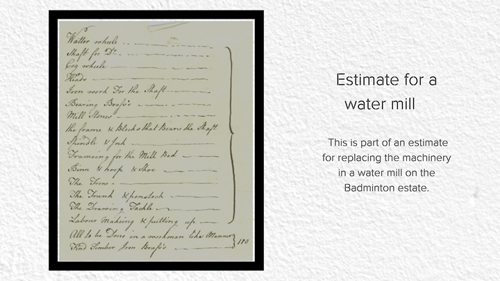 Watter wheele
Shaft for Do.
Cog wheele
Heads
Iron work For the Shaft
Bearing Brass's
Mill Stones
the frame & Blocks that Bears the Shaft
Spindle & Ink
for the Mill Bed
Binn & hoop & Shoe
The Irons
The Trunk & penstock
The Drawing Tackle
Labour Making & putting up
All to be Done in a workman like Manner
Find Timber Iron Brass's 190
Estimate for a
water mill
This is part of an estimate
for replacing the machinery
in a water mill on the
Badminton estate.